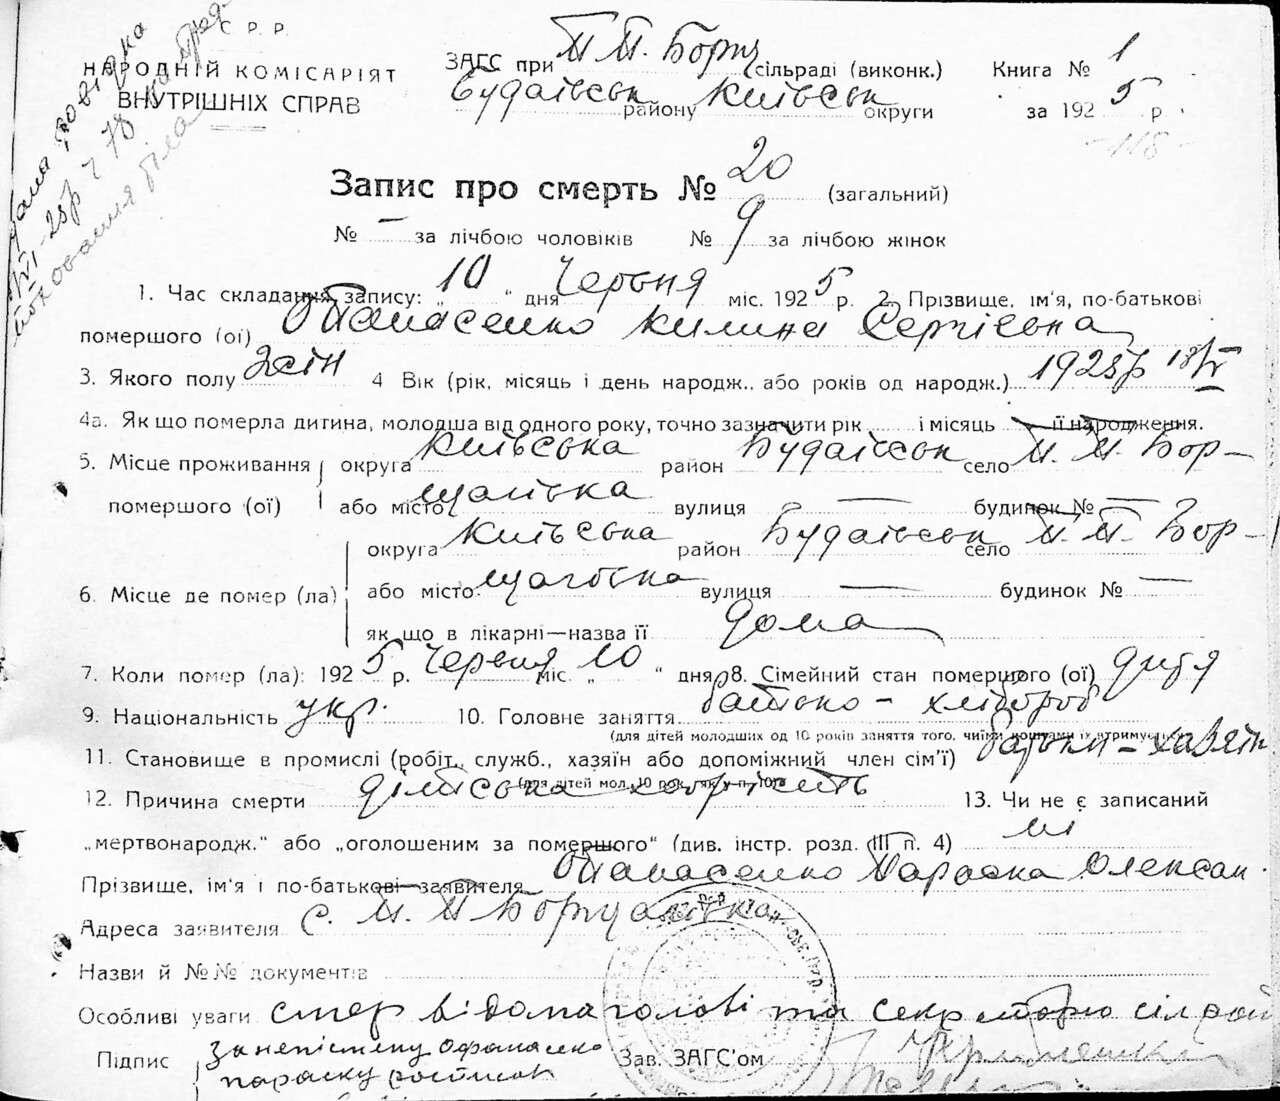 С. Р. Р.
НАРОДНІЙ КОМІСАРІЯТ
ВНУТРІШНІХ СПРАВ
ЗАГС при М П. Борщ сільраді (виконк.)
Будаївськ району Київськ округи
Книга № 1
за 1925 р.
-118-
Запис про смерть № 20 (загальний)
№ – за лічбою чоловіків № 9 за лічбою жінок
1. Час складання запису: „ 10 “ дня Червня міс. 1925 р. 2. Прізвище, ім'я, по-батькові
помершого (ої) Опанасенко Килина Сергієвна
3. Якого полу жін 4 Вік (рік, місяць і день народж., або років од народж.) 1925р 18/V
4а. Як що померла дитина, молодша від одного року, точно зазначити рік і місяць її народження.
5. Місце проживання округа Київська район Будаївськ село М. П. Бор-
помершого (ої) або місто щагівка вулиця — будинок № —
округа Київська район Будаївськ село М. П. Бор-
6. Місце де помер (ла) або місто щагівка вулиця — будинок № —
як що в лікарні—назва її дома
7. Коли помер (ла): 1925 р. Червня міс. „ 10 “ дня 8. Сімейний стан помершого (ої) дитя
9. Національність укр. 10. Головне заняття батько – хлібороб
(для дітей молодших од 10 років заняття того, чиїми коштами їх втримується)
11. Становище в промислі (робіт., служб., хазяїн або допоміжний член сім'ї) батько – хазяїн
(для дітей мол. 10 рок. як у п. 10)
12. Причина смерти дітська хорість 13. Чи не є записаний
„мертвонародж.“ або „оголошеним за помершого“ (див. інстр. розд. III п. 4) ні
Прізвище, ім'я і по-батькові заявителя Опанасенко Параска Олексан.
Адреса заявителя с. М. П Борщагівка
Назви й №№ документів
Особливі уваги смер відома голові та секреторю сілради
Підпис За неписмену Офанасенко Зав. ЗАГС'ом
параску росписов